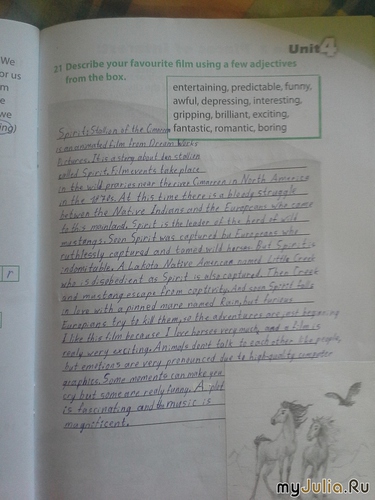 Unit 4
We
or us
m
e
we
ing)
21 Describe your favourite film using a few adjectives
from the box.
entertaining, predictable, funny,
awful, depressing, interesting,
gripping, brilliant, exciting,
fantastic, romantic, boring
Spirit: Stalion of the
is an animated film from Dream Works
Pictures. It is a story about ten stalion
called Spirit. Film events take place
in the wild praries near the river Cimarron in North America
in the 1870s. At this time there is a bloody struggle
betwen the Native Indians and the Europeans who come
to this mainland. Spirit is the leader of the herd of wild
mustangs. Soon Spirit was captured by Europeans who
ruthlessly captured and tamed wild horses. But Spirit is
indomitable. A Lakota Native American named Little Creek
who is disobedient as Spirit is also captured. Then Creek
and mustang escape from captivity. And soon Spirit falls
in love with a pinned mare named Rain, but furious
Europians try to kill them, so the adventures are just beginning
I like this film because I love horses very much, and a film is
realy wery exciting. Animals don't talk to each other like people,
but emotions are very pronounced due to high-quality computer
graphics. Some moments can make you
cry but some are realy funny. A plot
is fascinating and the music is
magnificent.
r
myJulia.Ru